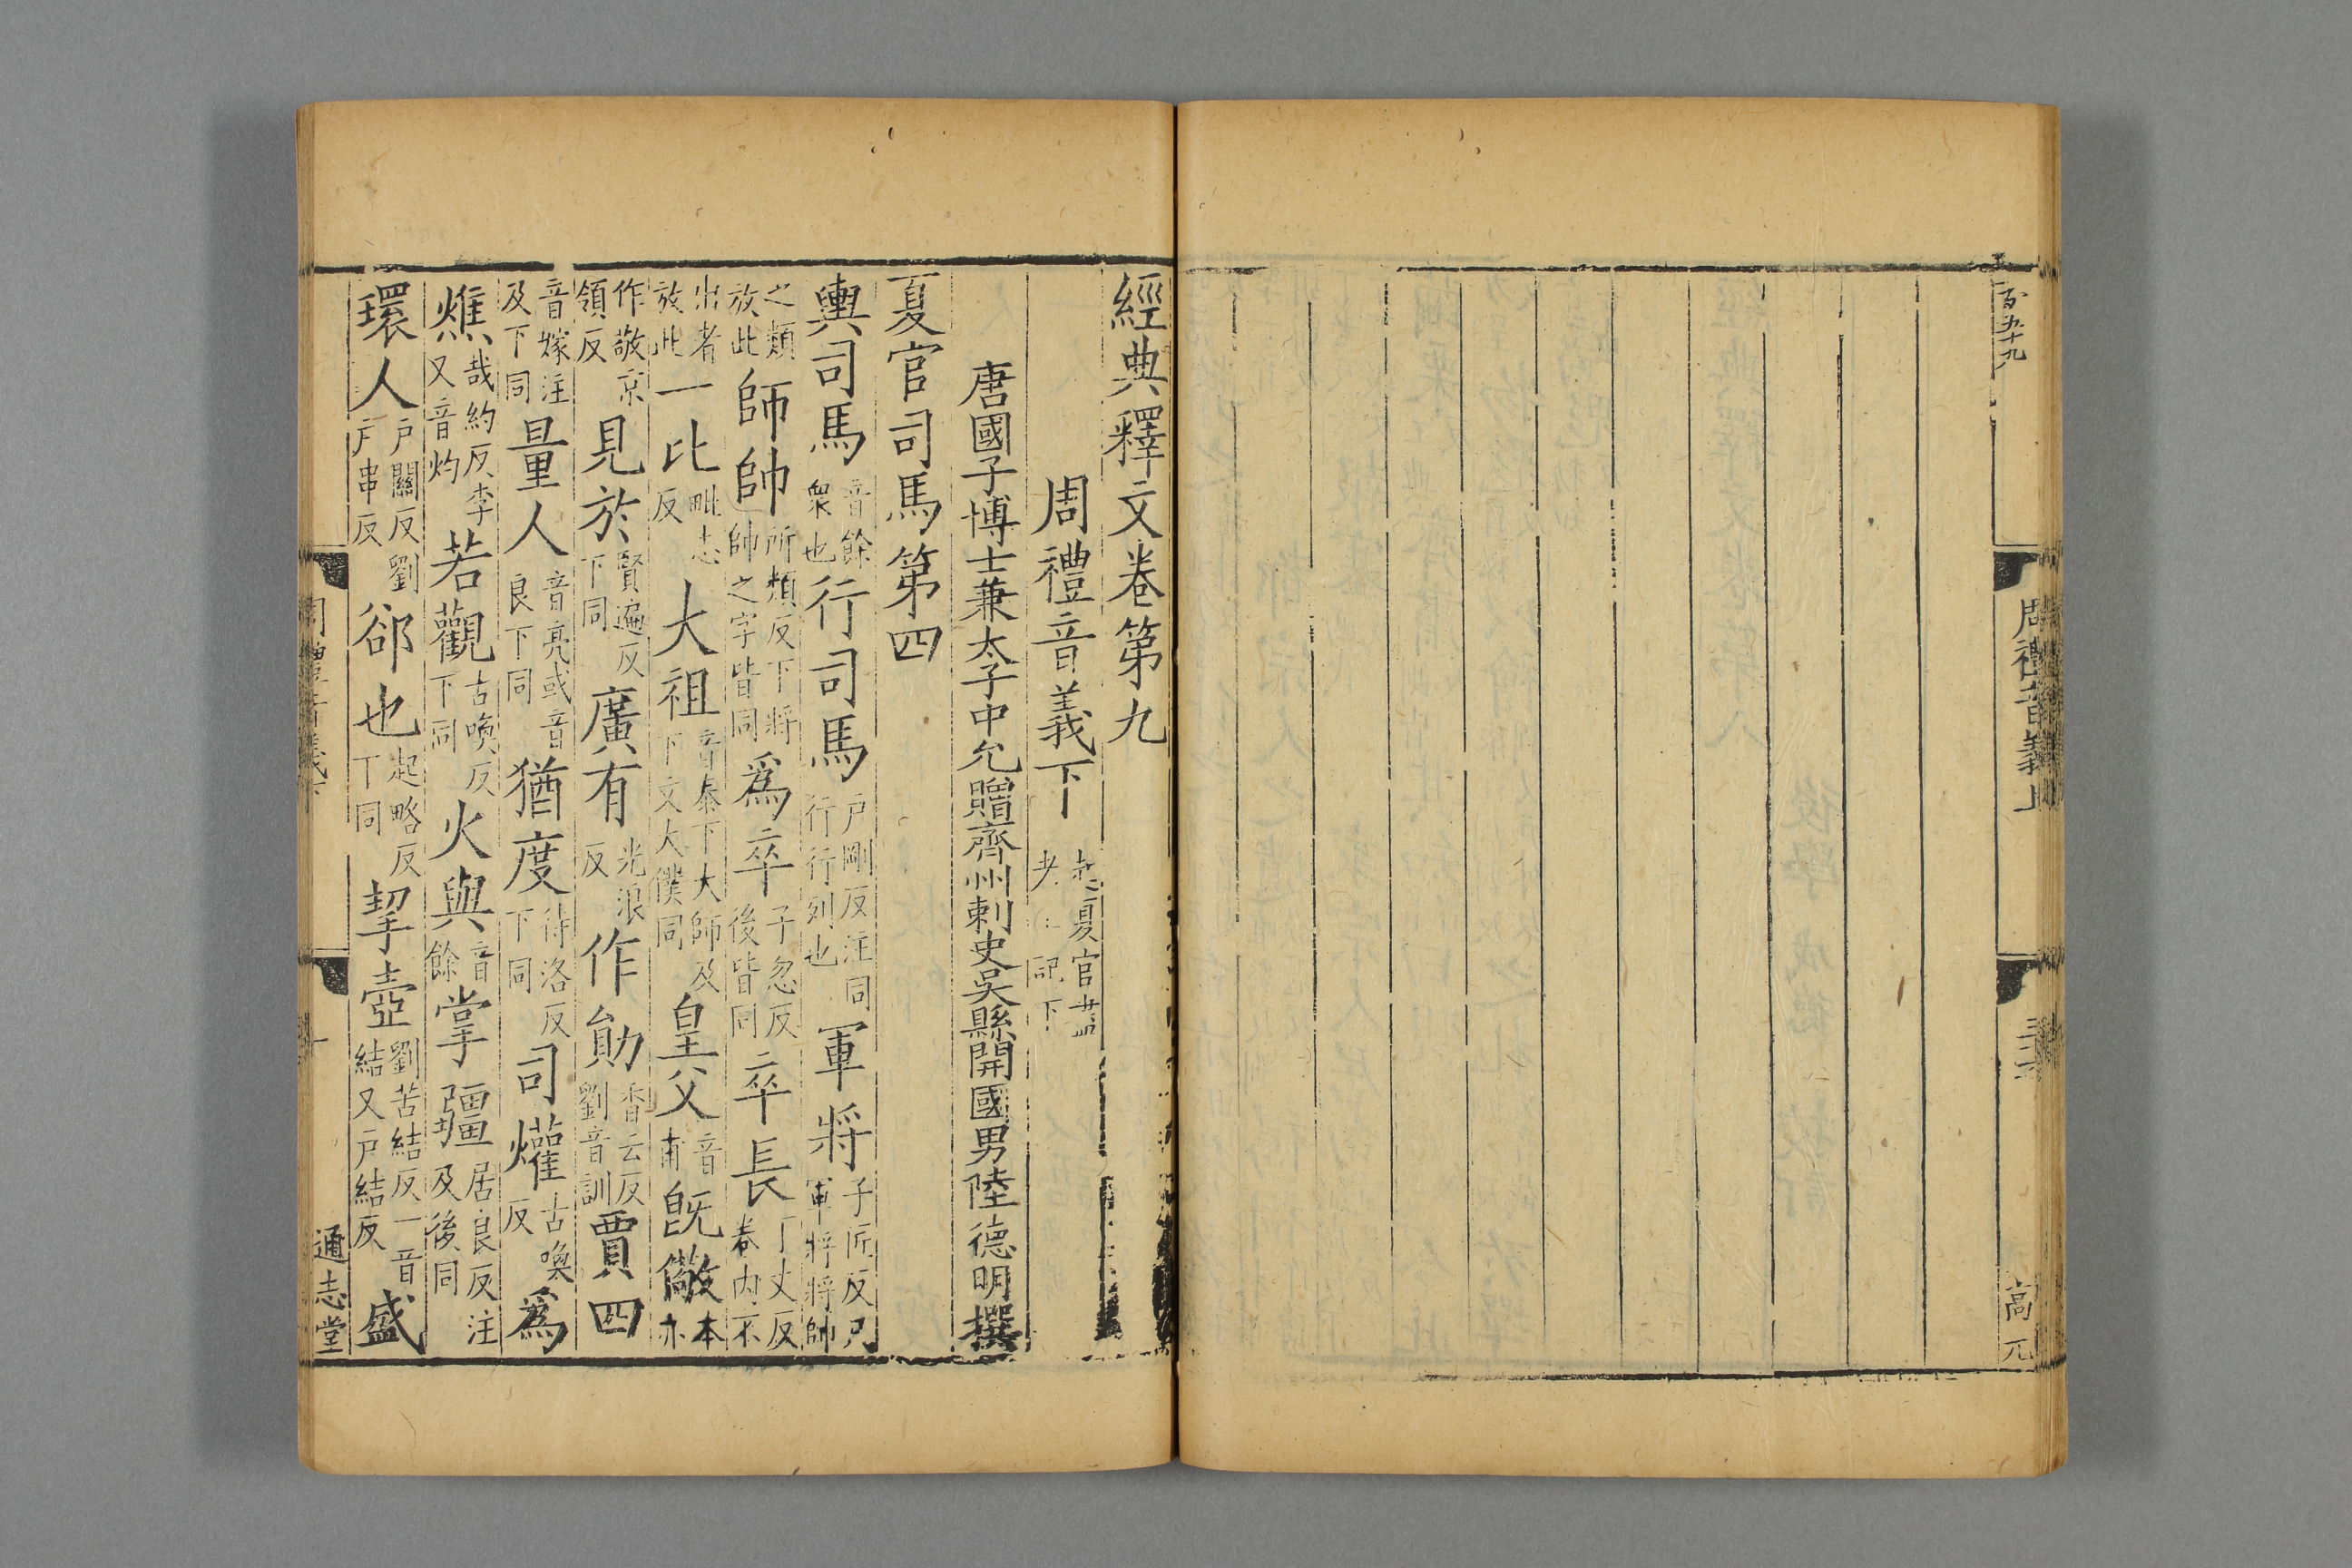 百五十九
周禮音義上
三十二
高元
經典釋文卷第九
周禮音義下 起夏官盡考工記下
唐國子博士兼太子中允贈齊州刺史吳縣開國男陸德明撰
夏官司馬第四
輿司馬音餘衆也行司馬戶剛反注同行行列也軍將子匠反凡軍將將帥
之類放此師帥所類反下將帥帥之字皆同爲卒子忽反後皆同卒長丁丈反卷內不
出者放此一比毗志反大祖音泰下大師及下文大僕同皇父音甫既儆本亦
作敬京領反見於賢遍反下同廣有光浪反作勛香云反劉音訓賈四
音嫁注及下同量人音亮或音良下同猶度待洛反下同司爟古喚反爲
燋哉約反李又音灼若觀古喚反下同火與音餘掌疆居良反注及後同
環人戶關反劉戶串反郤也起略反下同挈壺劉苦結反一音結又戶結反盛
周禮音義下
一
通志堂